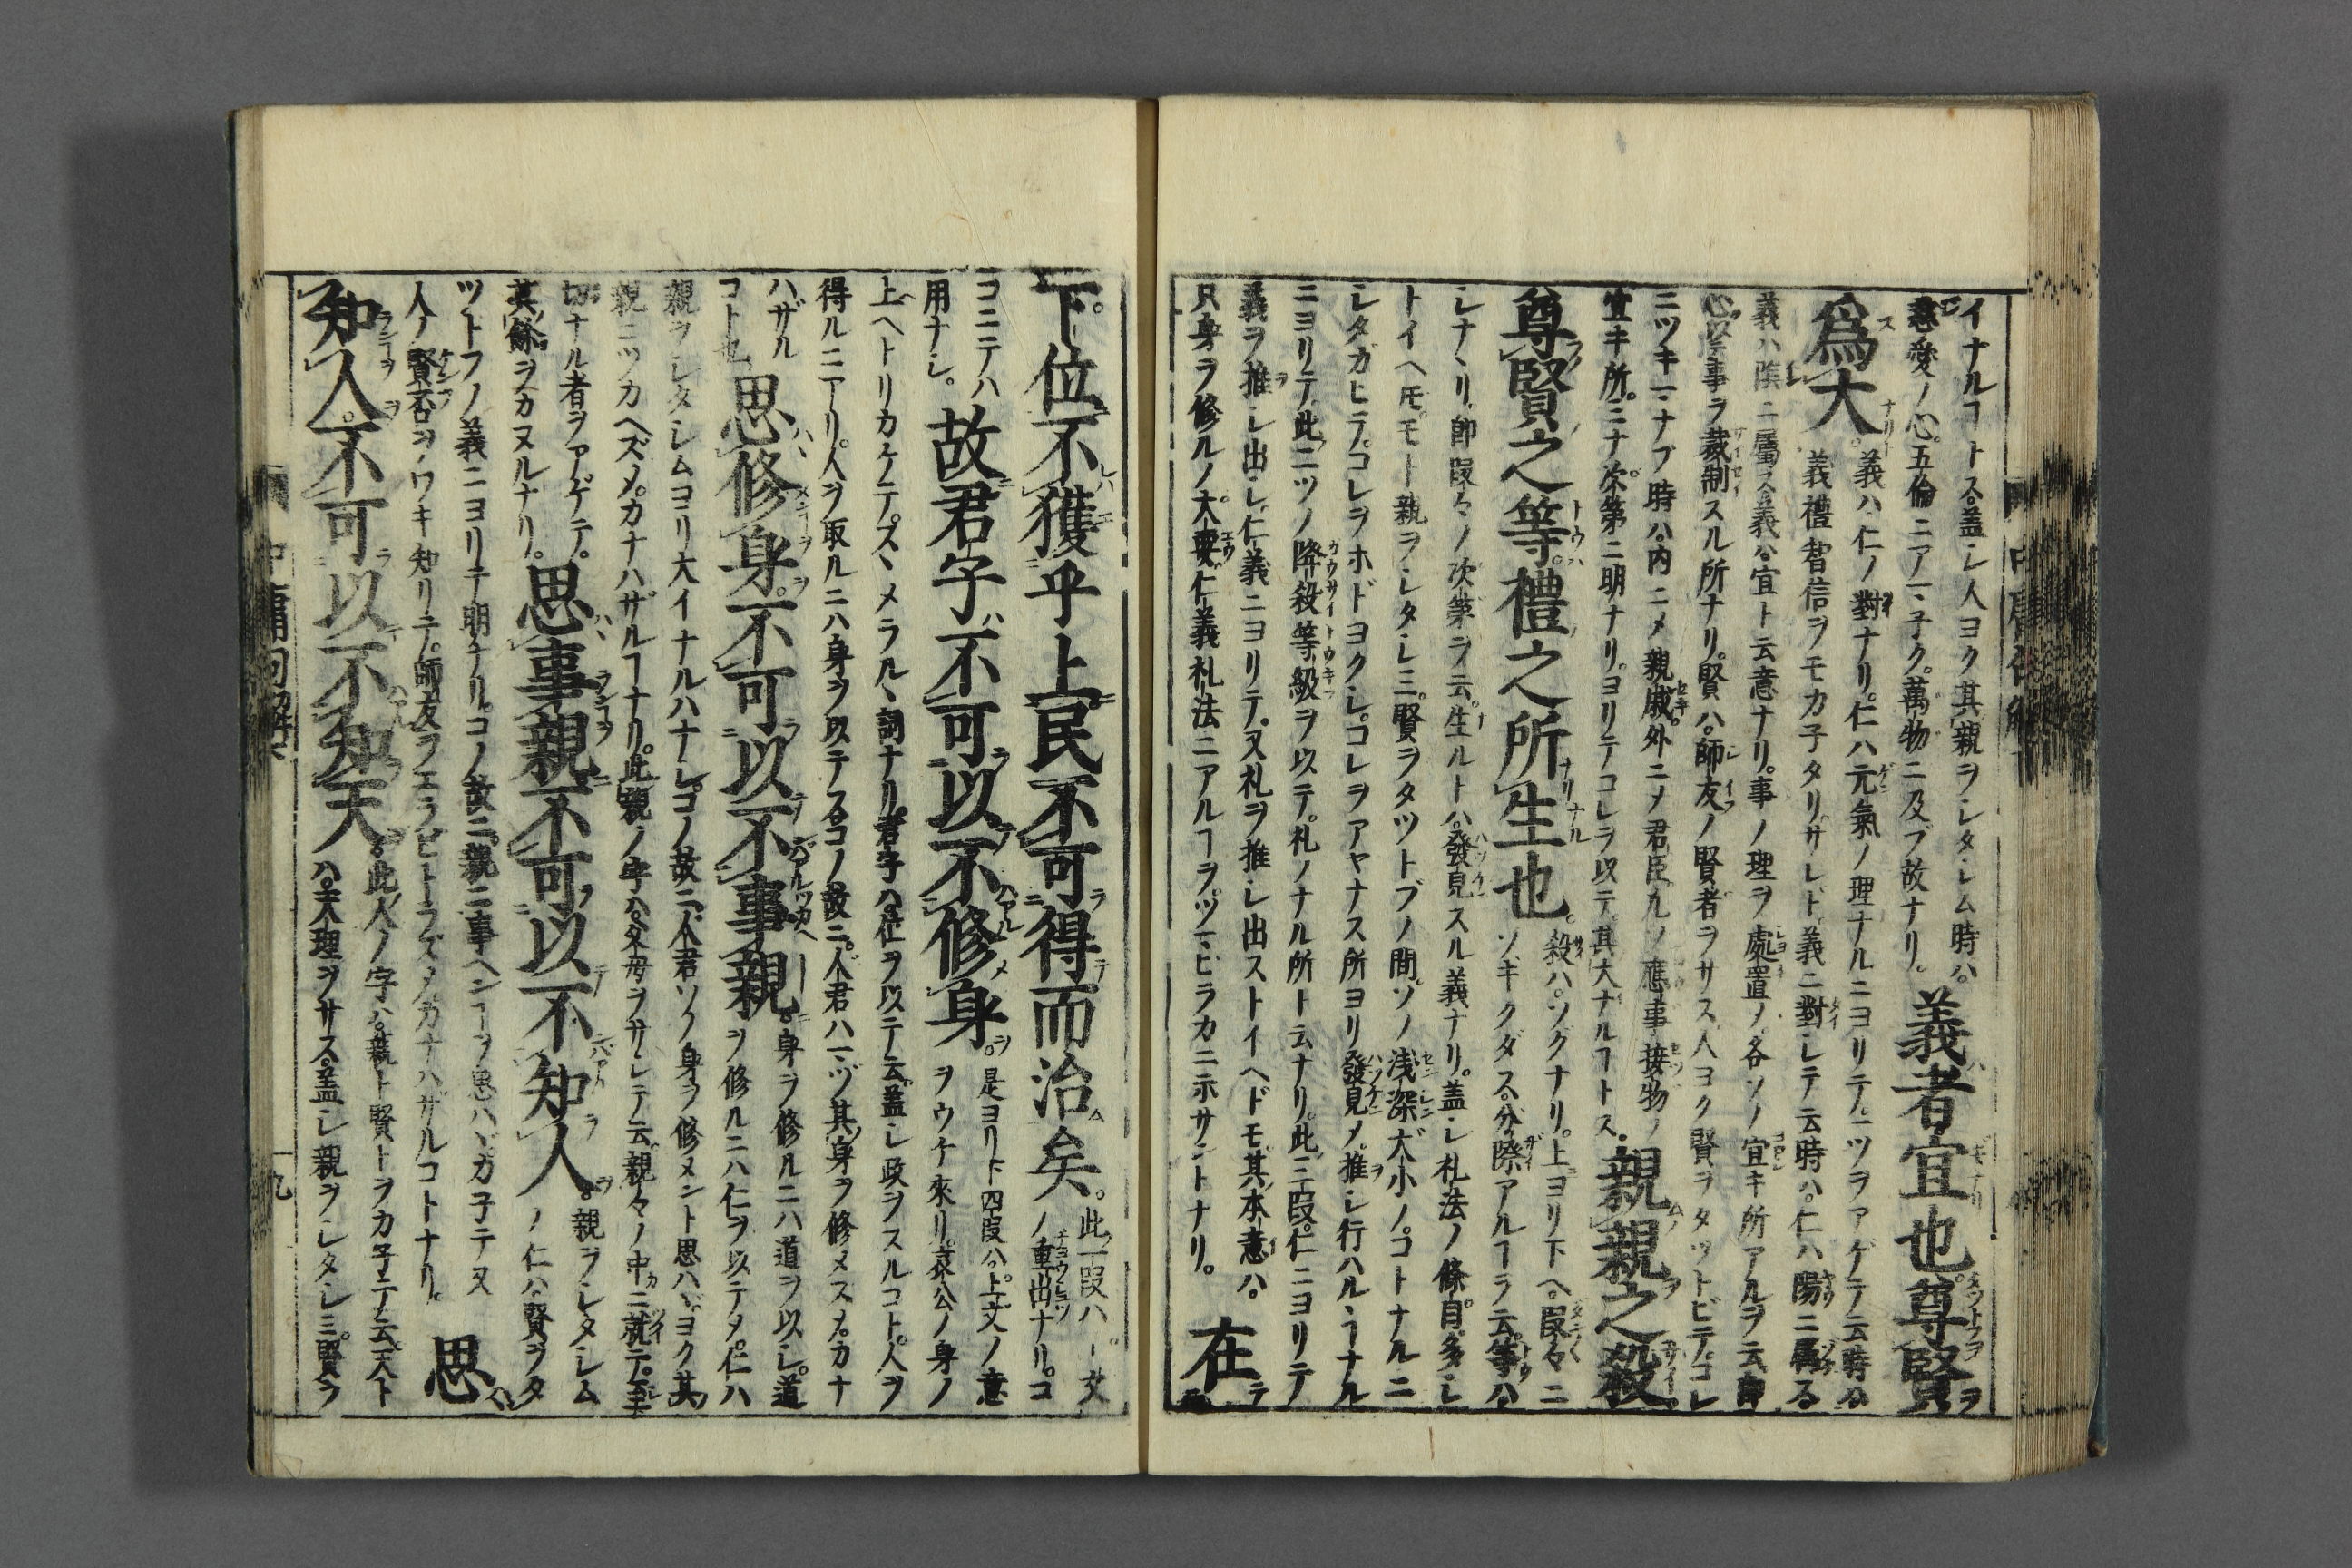 イナルヿトス。蓋シ人ヨク其親ヲシタシム時ハ。
慈愛ノ心。五倫ニアマ子ク。萬物ニ及ブ故ナリ。義者宜也尊賢
爲大。義ハ仁ノ對ナリ。仁ハ元氣ノ理ナルニヨリテ。一ツヲアゲテ云時ハ。
義禮智信ヲモカ子タリ。サレドモ義ニ對シテ云時ハ。仁ハ陽ニ屬シ。
義ハ陰ニ屬ス。義ハ宜ト云意ナリ。事ノ理ヲ處置メ。各ソノ宜キ所アルヲ云。即
心ノ事ヲ裁制スル所ナリ。賢ハ。師友ノ賢者ヲサス。人ヨク賢ヲタットビテ。コレ
ニツキマナブ時ハ。内ニメ親戚。外ニメ君臣凡ソ應事接物ノ
宜キ所。ミナ次第ニ明ナリ。ヨリテコレヲ以テ。其大ナルヿトス。親親之殺
尊賢之等。禮之所生也。殺ハ。ソグナリ。上ヨリ下ヘ。段々ニ
ソギクダス。分際アルヿヲ云。等ハ。
シナヽリ。即段々ノ次第ヲ云。生ルトハ。發見スル義ナリ。蓋シ札法ノ條目。多シ
トイヘ𪜈。モト親ヲシタシミ。賢ヲタットブノ間。ソノ浅深大小ノ。コトナルニ
シタガヒテ。コレヲホドヨクシ。コレヲアヤナス所ヨリ發見メ。推シ行ハルヽヿナル
ニヨリテ。此二ツノ降殺等級ヲ以テ。札ノナル所ト云ナリ。此二段。仁ニヨリテ
義ヲ推シ出シ。仁義ニヨリテ。又札ヲ推シ出ストイヘドモ。其本意ハ。
只身ヲ修ルノ大要。仁義札法ニアルヿヲ。ツマビラカニ示サントナリ。在
下位不獲乎上。民不可得而治矣。此一段ハ下文
ノ重出ナリ。コ
コニテハ
用ナシ。故君子不可以不修身。是ヨリ下四段ハ。上文ノ意
ヲウケ來リ。哀公ノ身ノ
上ヘトリカケテ。スヽメラルヽ詞ナリ。君子ハ。位ヲ以テ云。蓋シ政ヲスルコト。人ヲ
得ルニアリ。人ヲ取ルニハ身ヲ以テス。コノ故ニ。人君ハマヅ其身ヲ修メスメカナ
ハザル
コト也。思修身。不可以不事親。身ヲ修ルニハ道ヲ以シ。道
ヲ修ルニハ仁ヲ以テメ。仁ハ
親ヲシタシムヨリ大イナルハナシ。コノ故ニ人君ソノ身ヲ修メント思ハヾ。ヨク其
親ニツカヘズメ。カナハザルヿナリ。此親ノ字ハ。父母ヲサシテ云。親々ノ中ニ就テ。至
切ナル者ヲアゲテ。
其餘ヲカヌルナリ。思事親不可以不知人。親ヲシタシム
ノ仁ハ。賢ヲタ
ツトブノ義ニヨリテ明ナリ。コノ故ニ親ニ事ヘンヿヲ思ハヾ。カ子テヌ
人ノ賢否ヲワキ知リテ。師友ヲエラビトラズメ。カナハザルコトナリ。思
知人。不可以不知天。此人ノ字ハ。親ト賢トヲカ子テ云。天ト
ハ。天理ヲサス。蓋シ親ヲシタシミ。賢ヲ